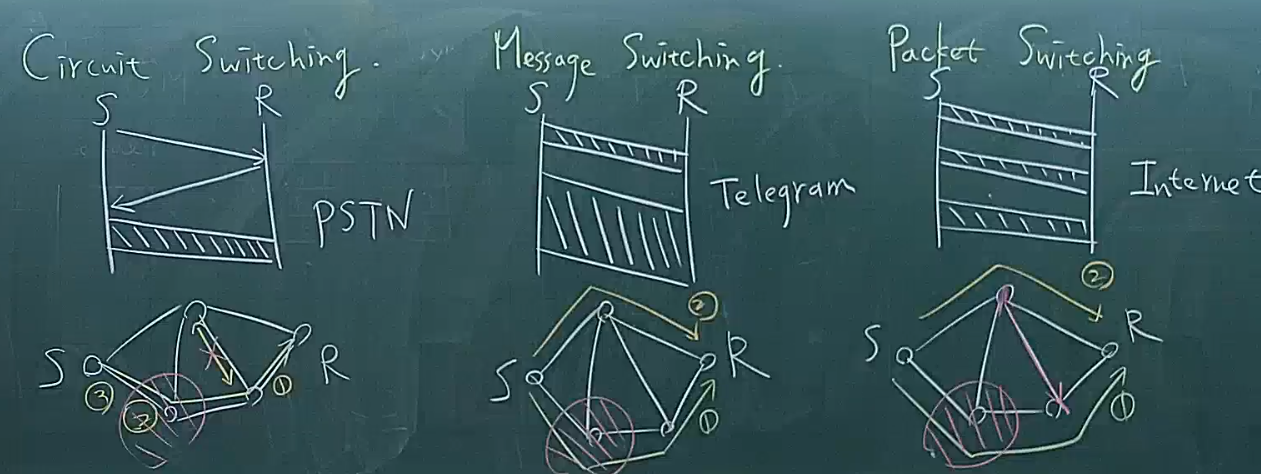 Circuit Switching.
S R
PSTN
S R
③ ② ①
Message Switching.
S R
Telegram
②
S R
①
Packet Switching
S R
Internet
②
S R
①